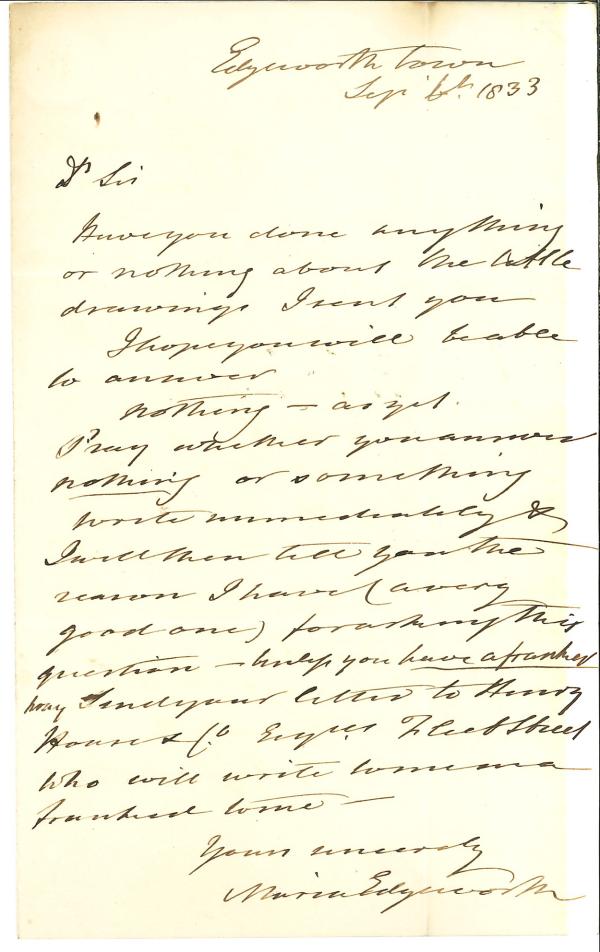 Edgeworth town
Sepr 6th 1833
Dr Sir
Have you done anything
or nothing about the little
drawings I sent you
I hope you will be able
to answer
nothing – as yet.
Pray whether you answer
nothing or something
write immediately &
I will then tell you the
reason I have (a very
good one) for asking this
question – unless you have a franked
pray send your letter to Henry
& Co Esqrs Fleet Street
who will write to me in a
franked to me –
Yours sincerely
Maria Edgeworth